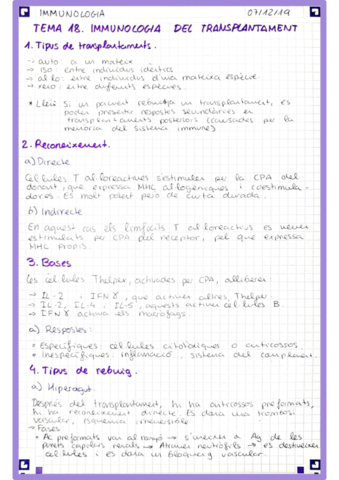 IMMUNOLOGIA 07/12/19
TEMA 18. IMMUNOLOGIA DEL TRANSPLANTAMENT
1. Tipus de transplantaments.
→ auto: a un mateix
→ iso: entre individus idèntics
→ al·lo: entre individus d'una mateixa espècie.
→ xeno: entre diferents espècies.
* Lleü Si un pacient rebutja un transplantament, es
poden presentar respostes secundàries en
transplantaments posteriors (causades per la
memòria del sistema immune)
2. Reconeixement.
a) Directe
Cèl·lules T al·loreactives s'estimulen per la CPA del
donant, que expressa MHC al·logèniques i coestimula-
dores. És molt potent però de curta durada.
b) Indirecte
En aquest cas els limfòcits T al·loreactius es veuen
estimulats per CPA del receptor, pel que expressa
MHC propis.
3. Bases
Les cèl·lules Thelper, activades per CPA, alliberen:
→ IL-2 i IFNγ, que activen altres Thelper
→ IL-2, IL-4 i IL-5, aquests activen cèl·lules B.
→ IFNγ activa els macròfags
a) Respostes:
• Específiques: cèl·lules citotòxiques o anticossos.
• Inespecífiques: inflamació, sistema del complement.
4. Tipus de rebuig.
a) Hiperagut.
Després del transplantament, hi ha anticossos preformats,
hi ha reconeixement directe. Es dona una trombosi
vascular, isquèmia irreversible
→ Fases
* Ac preformats van al ronyó → s'uneixen a Ag de les
parets capil·lars renals → Atrauen neutròfils → es destrueixen
cèl·lules i es dona un bloqueig vascular.